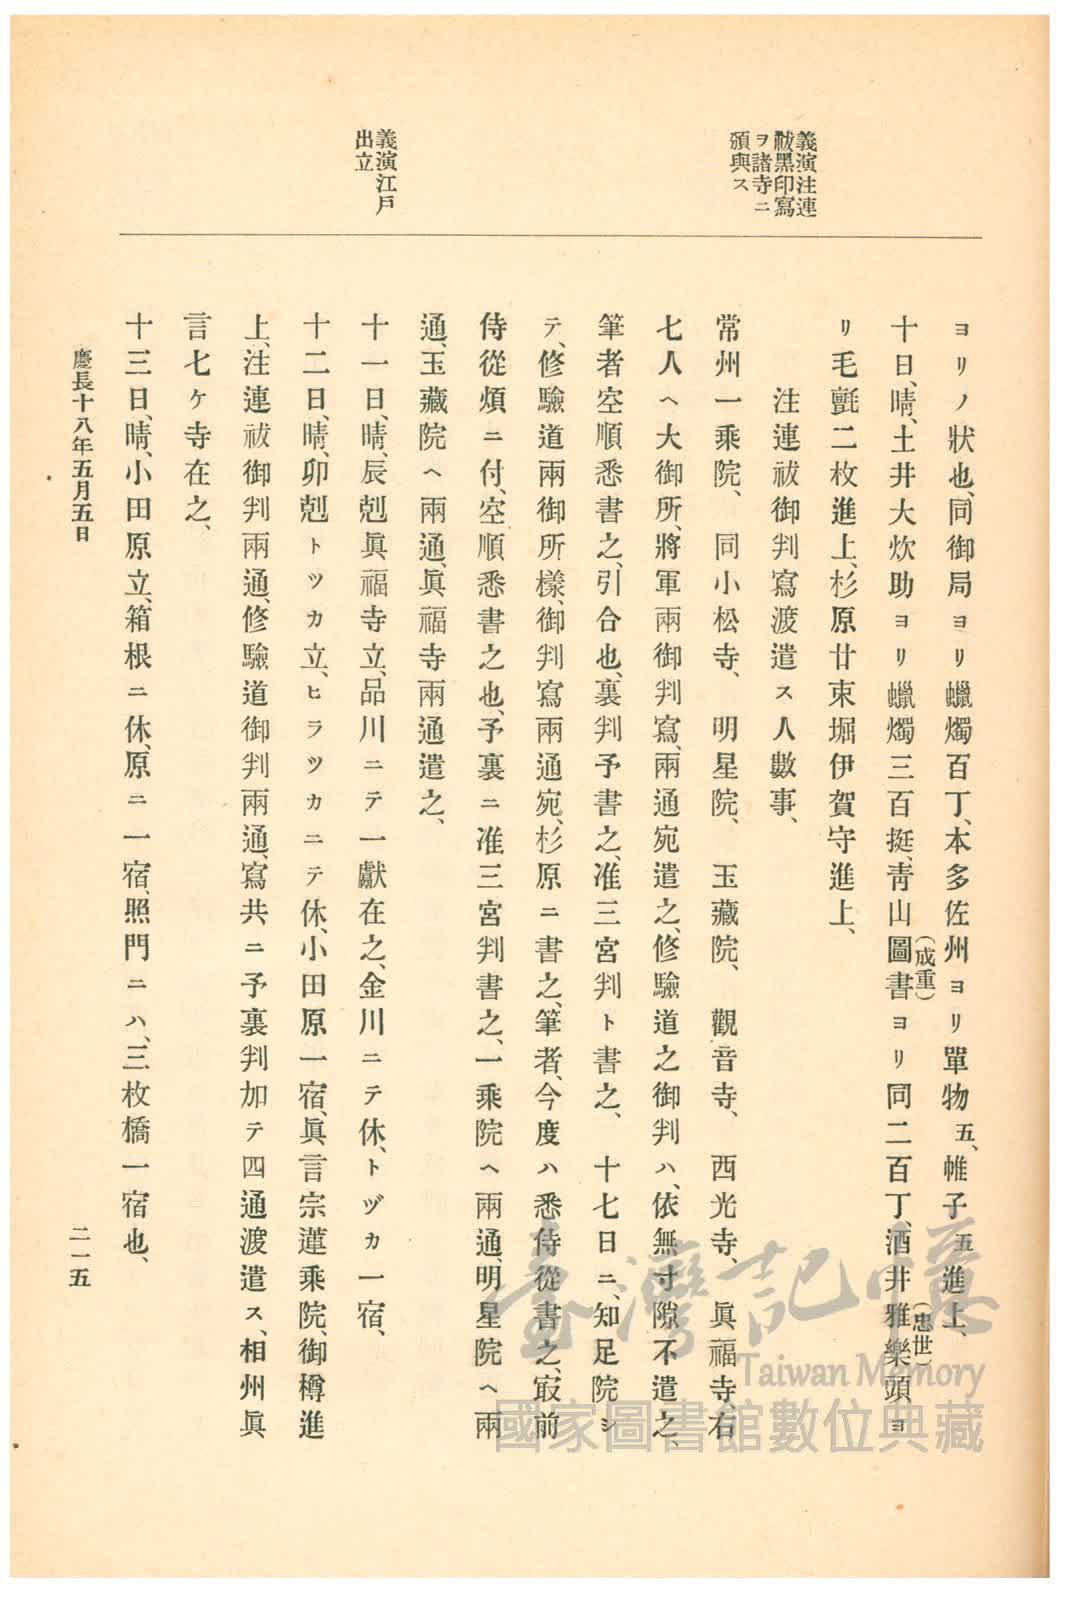 義演注連
祓黑印寫
ヲ諸寺ニ
頒與ス
義演江戸
出立
ヨリノ狀也、同御局ヨリ蠟燭百丁、本多佐州ヨリ單物五、帷子五進上、
十日、晴、土井大炊助ヨリ蠟燭三百挺、靑山圖書(成重)ヨリ同二百丁、酒井雅樂頭(忠世)ヨ
リ毛氈二枚進上、杉原廿束堀伊賀守進上、
注連祓御判寫渡遣ス人數事、
常州一乘院、同小松寺、明星院、玉藏院、觀音寺、西光寺、眞福寺、右
七人ヘ大御所、將軍兩御判寫、兩通宛遣之、修驗道之御判ハ、依無寸隙不遣之、
筆者空順悉書之、引合也、裏判予書之、准三宮判ト書之、十七日ニ、知足院シ
テ、修驗道兩御所樣、御判寫兩通宛、杉原ニ書之、筆者、今度ハ悉侍從書之、㝡前
侍從煩ニ付、空順悉書之也、予裏ニ准三宮判書之、一乘院ヘ兩通、明星院ヘ兩
通、玉藏院ヘ兩通、眞福寺兩通遣之、
十一日、晴、辰剋眞福寺立、品川ニテ一獻在之、金川ニテ休、トヅカ一宿、
十二日、晴、卯剋トツカ立、ヒラツカニテ休、小田原一宿、眞言宗蓮乘院、御樽進
上、注連祓御判兩通、修驗道御判兩通、寫共ニ予裏判加テ四通渡遣ス、相州眞
言七ケ寺在之、
十三日、晴、小田原立、箱根ニ休、原ニ一宿、照門ニハ、三枚橋一宿也、
慶長十八年五月五日
二一五
臺灣記憶
Taiwan Memory
國家圖書館數位典藏